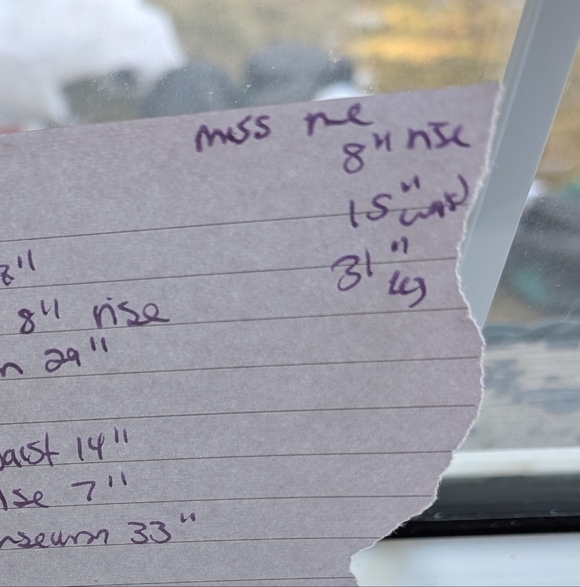 miss me
8" rise
15" waist
31" leg
8"
8" rise
29"
14"
7"
33"